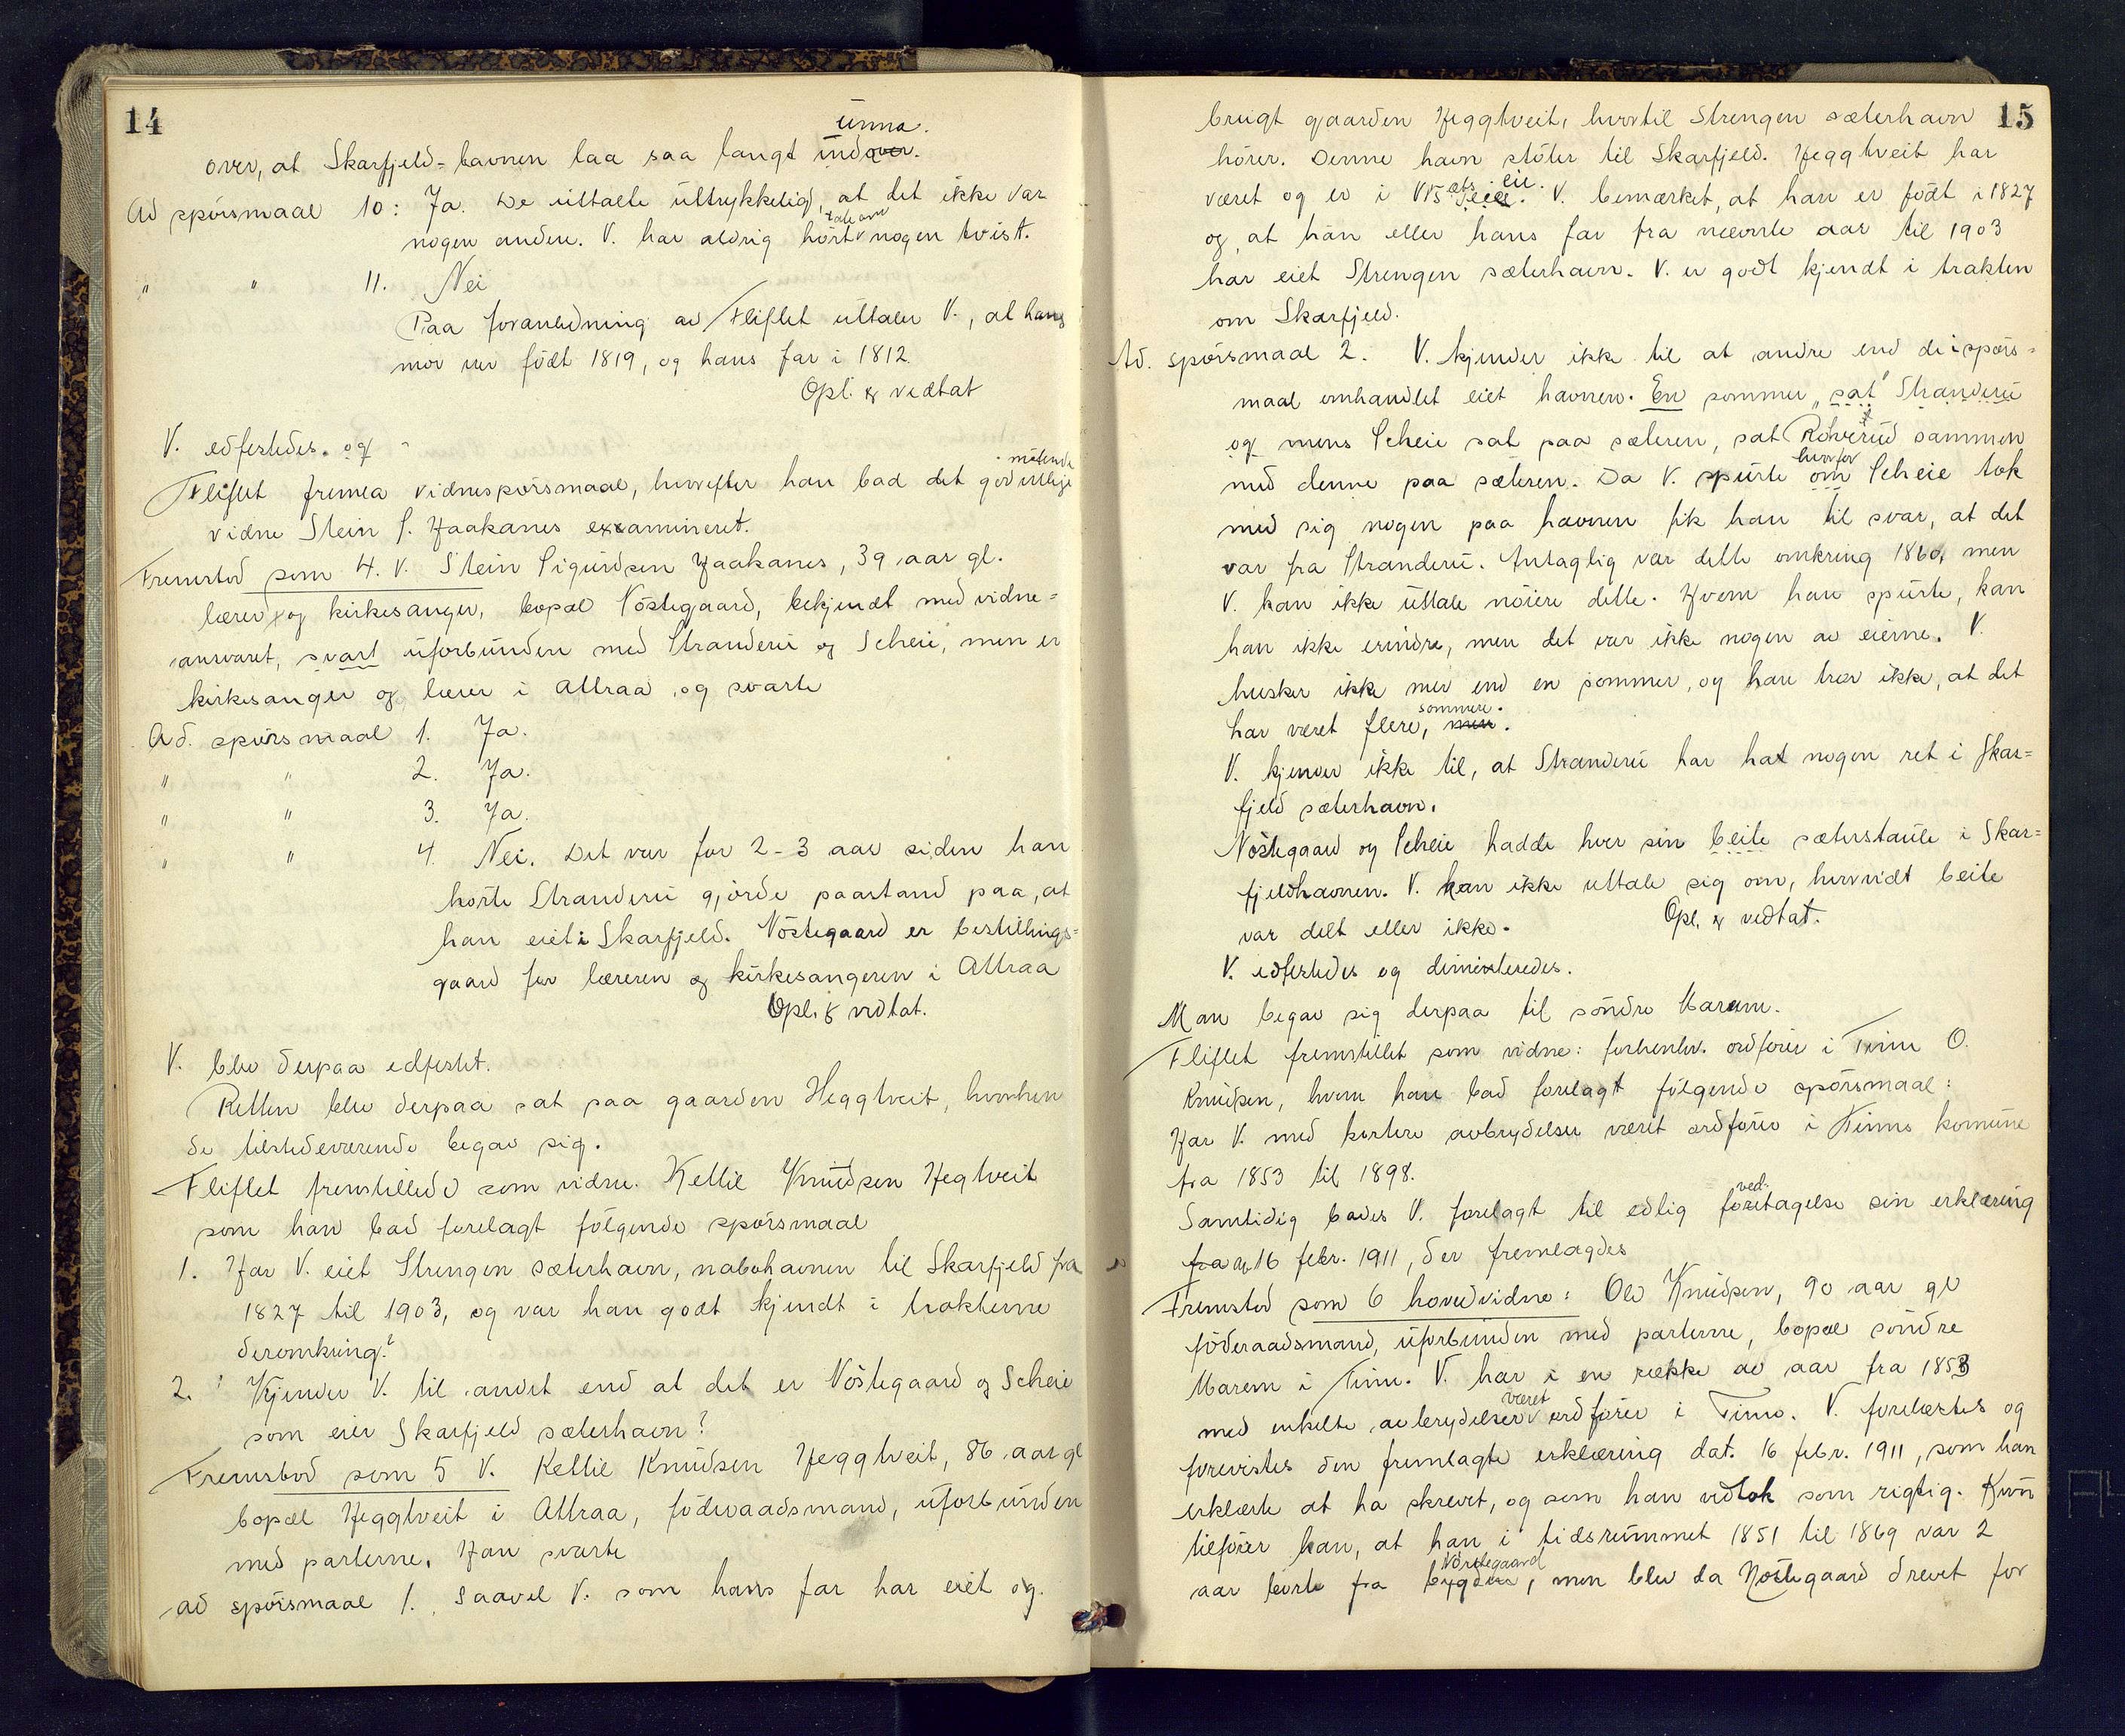 14
unna.
over, at Skarfjeld-havnen laa saa langt indover.
Ad spörsmaal 10: Ja. De uttalte uttrykkelig, at det ikke var
tale om
nogen anden. V. har aldrig hört nogen tvist.
" " 11. Nei
Paa foranledning av Fliflet uttaler V., at hans
mor var födt 1819, og hans far i 1812.
Opl. & vedtat
V. edfestedes. og
mötende
Fliflet frema vidnespörsmaal, hvorefter han bad det godvillige
vidne Stein S. Haakanes examineret.
Fremstod som 4. V. Stein Sigurdsen Haakanes, 39 aar gl.
lærer og kirkesanger, bopæl Nöstegaard, bekjendt med vidne-
ansvaret, svart uforbunden med Stranderu og Scheie, men er
kirkesanger og lærer i Attraa, og svarte
Ad. spörsmaal 1. Ja.
" " 2. Ja.
" " 3. Ja.
" " 4. Nei. Det var for 2-3 aar siden han
hörte Stranderu gjorde paastand paa, at
han eiet i Skarfjeld. Nöstegaard er bestillings-
gaard for læreren og kirkesangeren i Attraa
Opl. & vedtat.
V. blev derpaa edfestet.
Retten blev derpaa sat paa gaarden Heggtveit, hvorhen
de tilstedeværende begav sig.
Fliflet fremstillede som vidne. Kettil Knudsen Hegtveit
som han bad forelagt fölgende spörsmaal
1. Har V. eiet Strengen sæterhavn, nabohavnen til Skarfjeld fra
1827 til 1903, og var han godt kjendt i trakterne
deromkring?
2. Kjender V. til andet end at det er Nöstegaard og Scheie
som eier Skarfjeld sæterhavn?
Fremstod som 5 V. Kettil Knudsen Heggtveit, 86 aar gl
bopæl Heggtveit i Attraa, föderaadsmand, uforbunden
med parterne. Han svarte
Ad spörsmaal 1. Saavel V. som hans far har eiet og
15
brugt gaarden Heggtveit, hvortil Strengen sæterhavn
hörer. Denne havn stöter til Skarfjeld. Heggtveit har
været og er i V's æts eie. V. bemærket, at han er födt i 1827
og, at han eller hans far fra nævnte aar til 1903
har eiet Strengen sæterhavn. V. er godt kjendt i trakten
om Skarfjeld.
Ad. spörsmaal 2. V. kjender ikke til at andre end de i spörs-
maal omhandlet eiet havnen. En sommer "sat" Stranderu
og mens Scheie sat paa sæteren, sat sammen
hvorfor
med denne paa sæteren. Da V. spurte om Scheie tok
med sig nogen paa havnen fik han til svar, at det
var fra Stranderu. Antaglig var dette omkring 1860, men
V. kan ikke uttale nöiere dette. Hvem han spurte, kan
han ikke erindre, men det var ikke nogen av eierne. V.
husker ikke mer end en sommer, og han tror ikke, at det
sommere.
har været flere, men.
V. kjender ikke til, at Stranderu har hat nogen ret i Skar-
fjeld sæterhavn.
Nöstegaard og Scheie hadde hver sin beite sæterstaule i Skar-
fjeldhavnen. V. kan ikke uttale sig om, hvorvidt beite
var delt eller ikke. Opl. & vedtat.
V. edfestedes og dimitteredes.
Man begav sig derpaa til söndre Marum.
Fliflet fremstillet som vidne: forhenv. ordförer i Tinn O.
Knudsen, hvem han bad forelagt fölgende spörsmaal:
Har V. med kortere avbrydelser været ordförer i Tinns komune
fra 1853 til 1898.
ved.
Samtidig bades V. forelagt til edlig foretagelse sin erklæring
fra av 16 febr. 1911, der fremlagdes
Fremstod som 6 hovedvidne: Ole Knudsen, 90 aar gl
föderaadsmand, uforbunden med parterne, bopæl söndre
Marem i Tinn. V. har i en række av aar fra 1853
været
med enkelte avbrydelser ordförer i Tinn. V. forelæstes og
forevistes den fremlagte erklæring dat. 16 febr. 1911, som han
erklærte at ha skrevet, og som han vedtok som rigtig. Kun
tilföier han, at han i tidsrummet 1851 til 1869 var 2
Nöstegaard
aar borte fra bygden, men blev da Nöstegaard drevet for